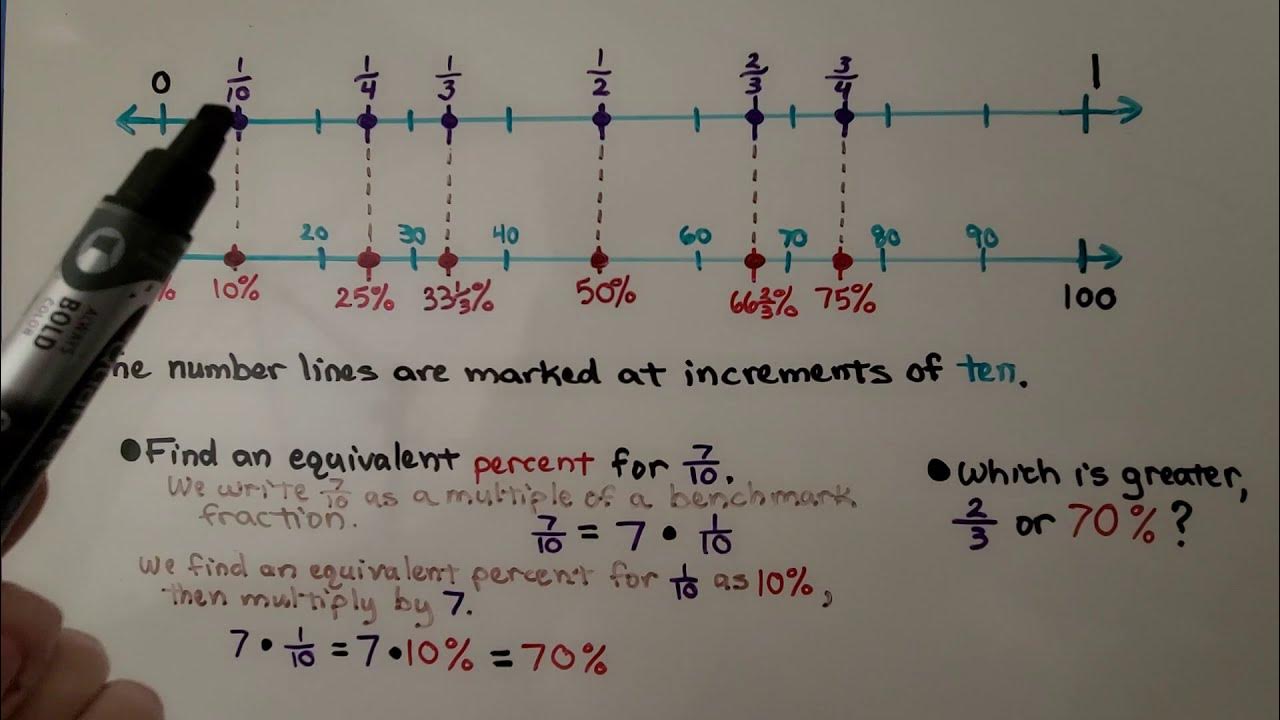 0 1/10 1/4 1/3 1/2 2/3 3/4 1
20 30 40 60 70 80 90
% 10% 25% 33 1/3% 50% 66 2/3% 75% 100
ALWAYS BOLD COLOR
he number lines are marked at increments of ten.
●Find an equivalent percent for 7/10.
We write 7/10 as a multiple of a benchmark
fraction.
7/10 = 7 • 1/10
We find an equivalent percent for 1/10 as 10%,
then multiply by 7.
7 • 1/10 = 7 • 10% = 70%
●Which is greater,
2/3 or 70%?